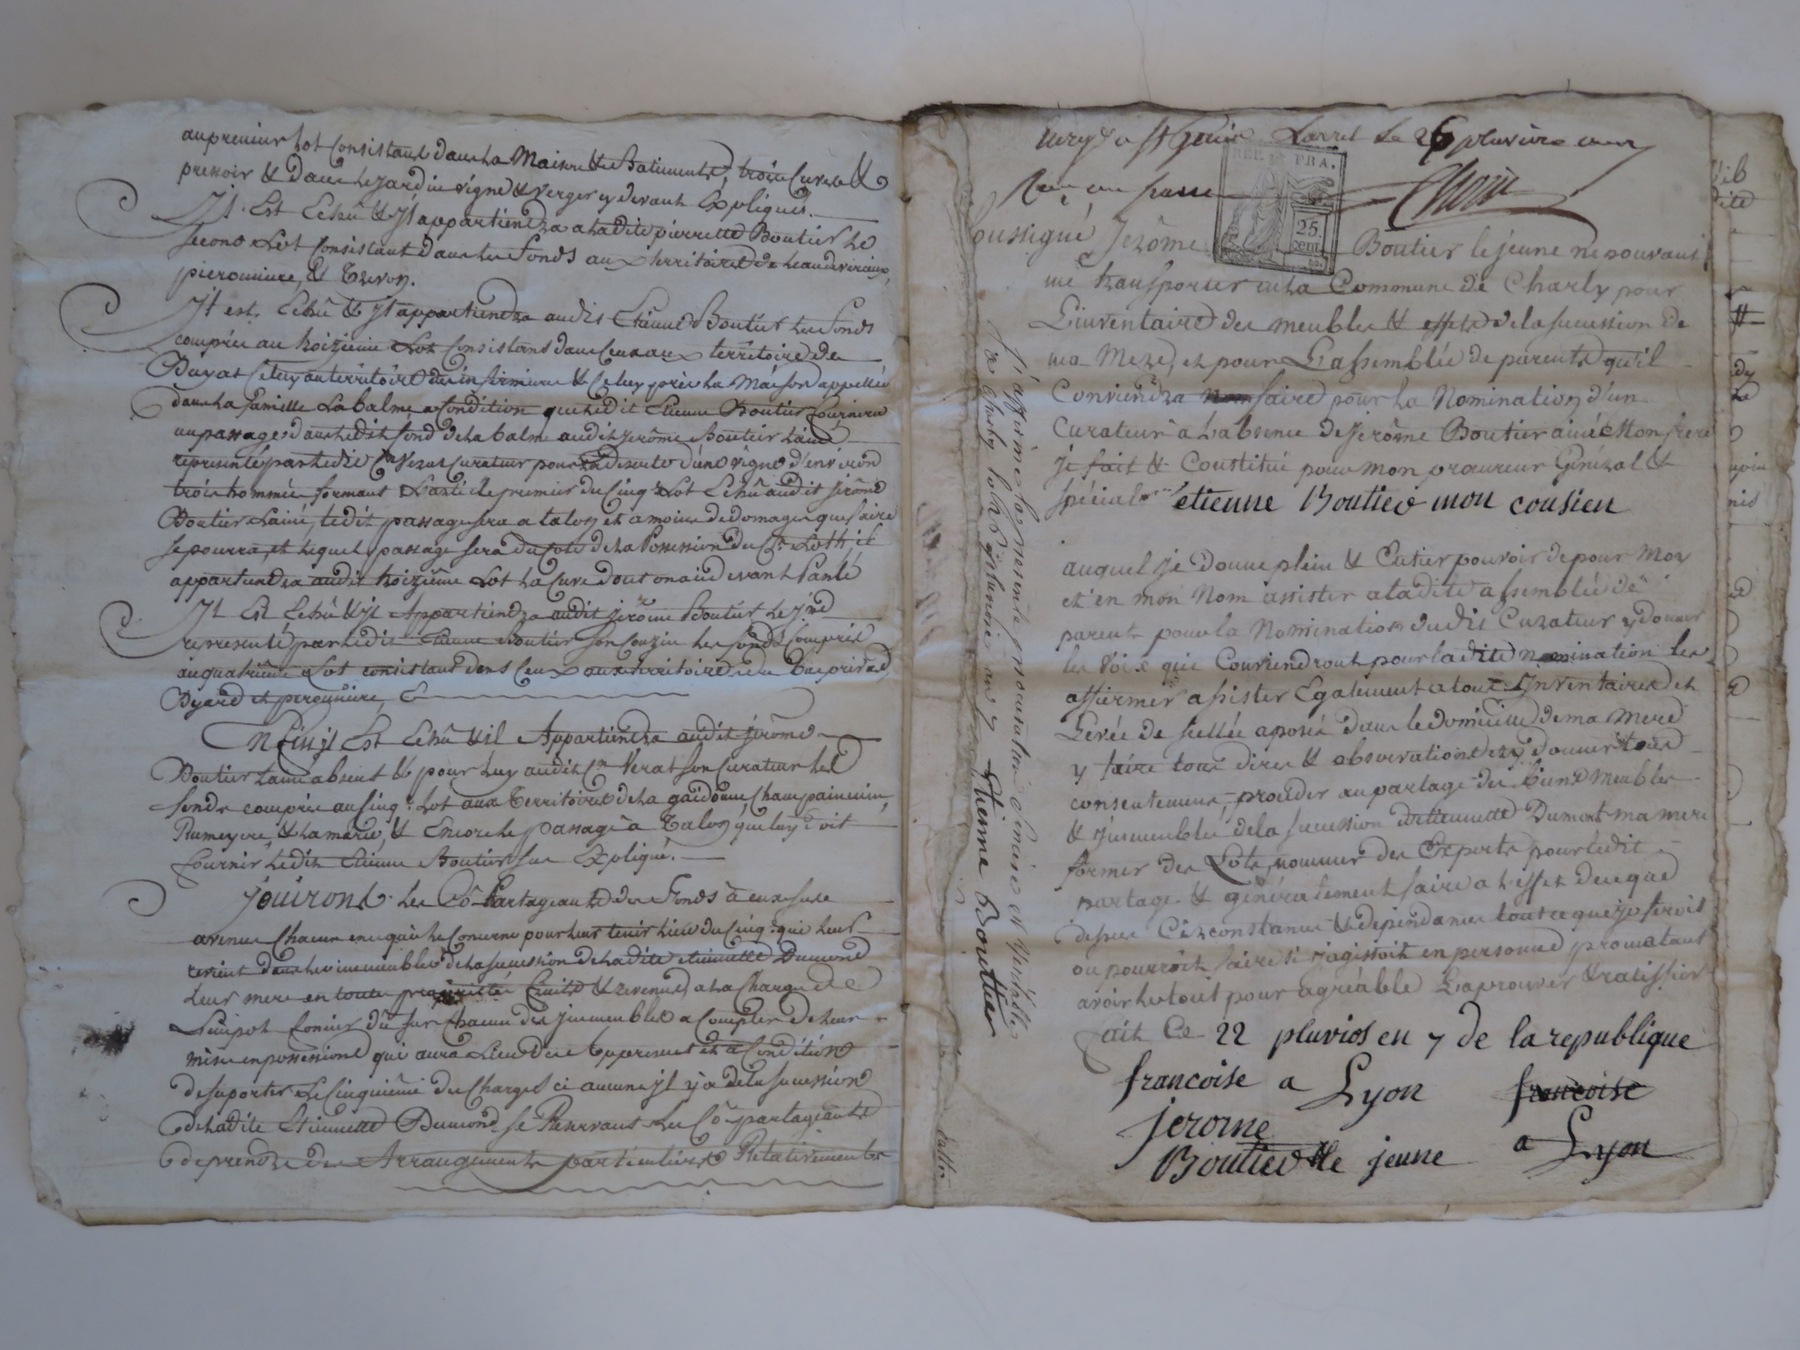 au premier Lot Consistant dans La Maison & Batiments, trois Cuves &
pressoir & dans Le jardin vigne & verger y devant Expliqués.
Il Est Echû & Il appartiendra a ladite pierrette Boutier Le
second Lot Consistant dans les fonds aux Territoires de
pieromiere, & Trevoy.
Il est Echû & Il appartiendra audit Etienne Boutier les fonds
compris au troizieme Lot Consistans dans Ceux aux territoire de
Buyat Celuy au territoire des infirmiere & Celuy près La Maison appellée
dans La famille La balme a Condition que Ledit Etienne Boutier fournira
un passage dans Ledit fond de La balme audit jerôme Boutier Lainé
représenté par Ledit Cn Verat Curateur pour La Desserte d'une vigne d'environ
trois hommée formant L'article premier du Cinq.e Lot Echû audit jerôme
Boutier Lainé, Ledit passage sera a talon et a moins de domages que faire
se pourra, et Lequel passage sera du coté de La Possession du Cn il
appartiendra audit troizième Lot La Cuve dont on a cidevant Parlé
Il Est Echû & il Appartiendra audit jerôme Boutier Le jne
representé par Ledit Etienne Boutier son Couzin les fonds Compris
au quatrieme Lot consistant dans Ceux aux territoires de
Byard et peroniere, &
Enfin il Est Echû & il Appartiendra audit jerôme
Boutier Lainé absent & pour Luy audit Cn Verat son Curateur Les
fonds compris au Cinq.e Lot aux Territoires de La
& Encore Le passage a Talon que luy doit
fournir Ledit Etienne Boutier sus Expliqué.
Jouiront Les Co-Partageants des Fonds à eux
avenus Chacun en ce qui Le Concerne pour Leur tenir Lieu du Cinq.e qui Leur
revient dans Les immeubles de La succession de Ladite etiennette Dumond
Leur mere en toute propriété & revenus, a La Charge de
L'impot foncier dû sur Chacun des Immeubles a Compter de Leur
mise en possession qui aura Lieu dès apresent et a Condition
de suporter Le Cinquième des Charges si aucune il y'a de La succession
de Ladite Etiennette Dumond se Reservant Les Co-partageants
de prendre des Arrangements particuliers Relativement
a St Genis Laval Le 26 pluviose an 7
Reçu un franc
REP. FRA.
25.
cent.
soussigné Jerôme Boutier le jeune ne pouvant
me transporter en la Commune de Charly pour
L'inventaire des meubles & effets de la sucession de
ma Mere, et pour L'assemblée de parents qu'il
Conviendra faire pour La Nomination d'un
Curateur a L'absence de Jerôme Boutier ainé Mon frere
je fait & Constitue pour mon procureur Général &
spécial etienne Boutier mon cousien
auquel je Donne plein & Entier pouvoir de pour Moy
et en mon Nom assister a ladite assemblée de
parents pour la Nomination dudit Curateur y donner
les voix qui Conviendront pour ladite nomination les
affirmer assister Egalement a tout Inventaires et
Levée de scellés aposés dans le domicile de ma Mere
y faire tous dires & observations donner tous
consentement, procéder au partage des biens Meubles
& Immeubles de la sucession detiennette Dumont ma mere
former des Lots, nommer des Experts pour ledit
partage & généralement faire a l'effet de ce que
dessus Circonstances & dependances tout ce que je ferois
ou pourrois faire si j'agissoit en personne promettant
avoir le tout pour agréable L'aprouver & ratiffier
fait Ce 22 pluvios en 7 de la republique
francoise a Lyon francoise
jerome
Boutier le jeune a Lyon
J'affirme la presente procuration sincère et Véritable
a Charly
Etienne Boutier